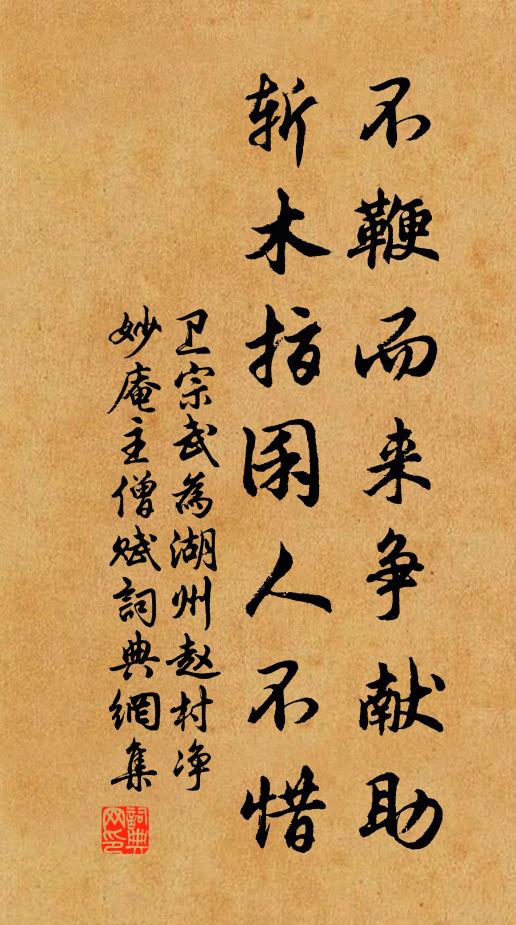 不鞭而来争献助
斩木指囷人不惜
卫宗武為湖州赵村净
妙庵主僧赋詞典網集
詞典网印